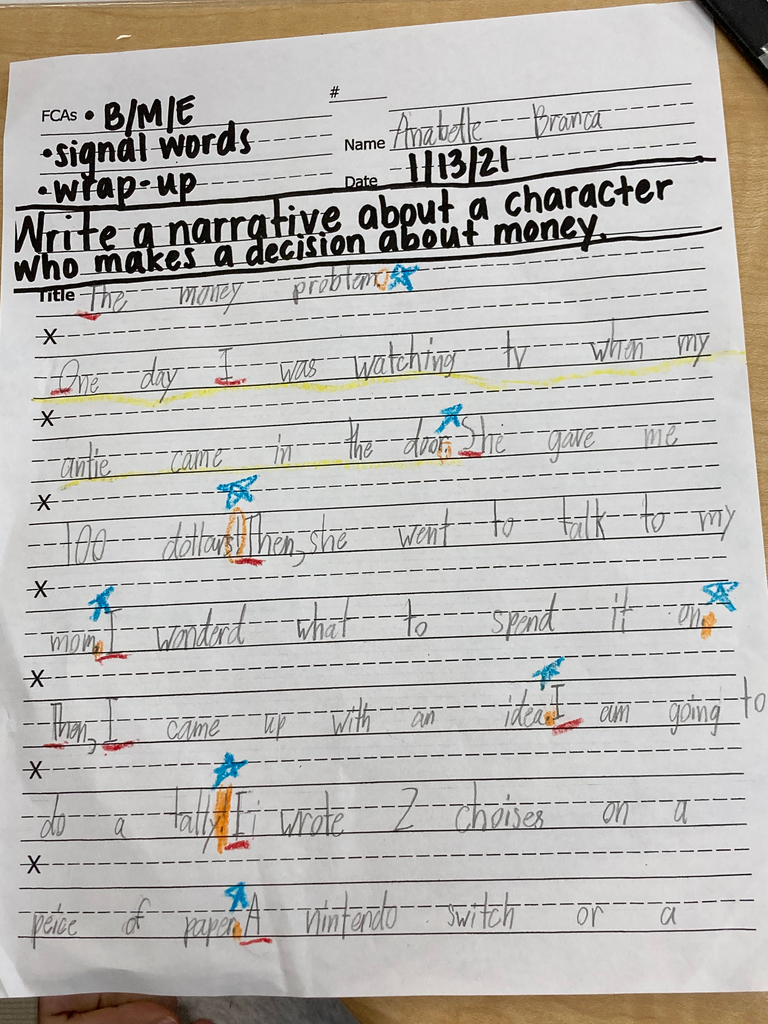 #
FCAs • B/M/E
•signal words
Name Anabelle Branca
•wrap-up
Date 1/13/21
Write a narrative about a character
who makes a decision about money.
Title The money problem.
X
One day I was watching tv when my
X
antie came in the door. She gave me
X
100 dollars! Then, she went to talk to my
X
mom. I wonderd what to spend it on.
X
Then, I came up with an idea. I am going to
X
do a tally! I wrote 2 choises on a
X
peice of paper. A nintendo switch or a